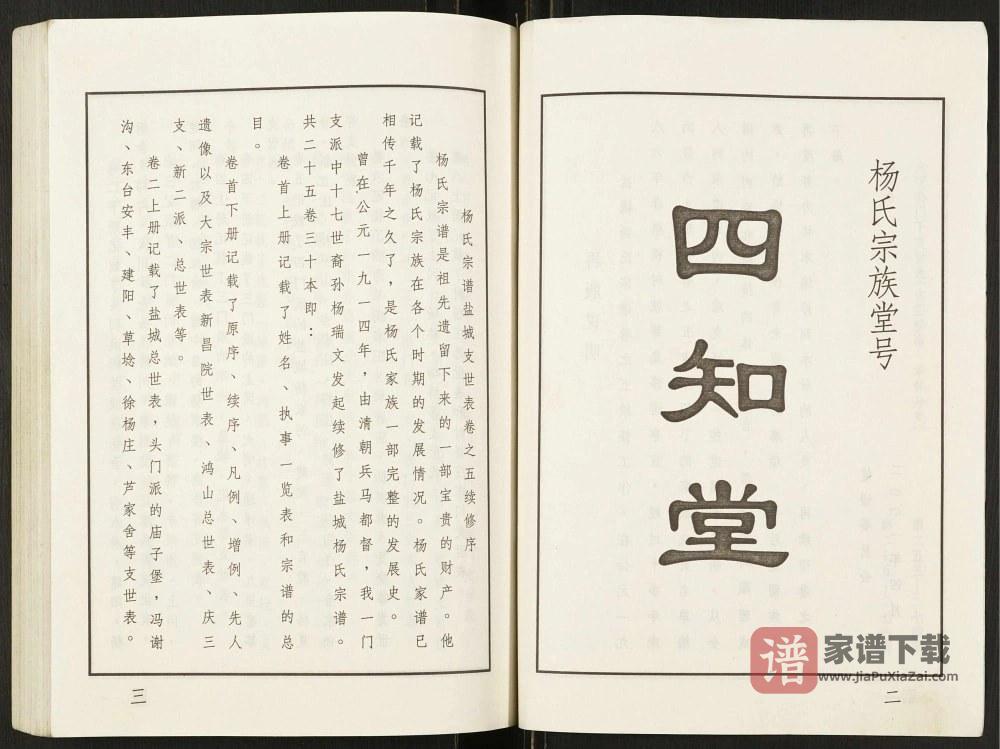 杨氏宗族堂号
四知堂
二
杨氏宗谱盐城支世表卷之五续修序
杨氏宗谱是祖先遗留下来的一部宝贵的财产。他
记载了杨氏宗族在各个时期的发展情况。杨氏家谱已
相传千年之久了，是杨氏家族一部完整的发展史。
曾在公元一九一四年，由清朝兵马都督，我一门
支派中十七世裔孙杨瑞文发起续修了盐城杨氏宗谱。
共二十五卷三十本即：
卷首上册记载了姓名、执事一览表和宗谱的总
目。
卷首下册记载了原序、续序、凡例、增例、先人
遗像以及大宗世表新昌院世表、鸿山总世表、庆三
支、新二派、总世表等。
卷二上册记载了盐城总世表，头门派的庙子堡，冯谢
沟、东台安丰、建阳、草埝、徐杨庄、芦家舍等支世表。
三
谱 家谱下载
www.jiaPuXiaZai.com